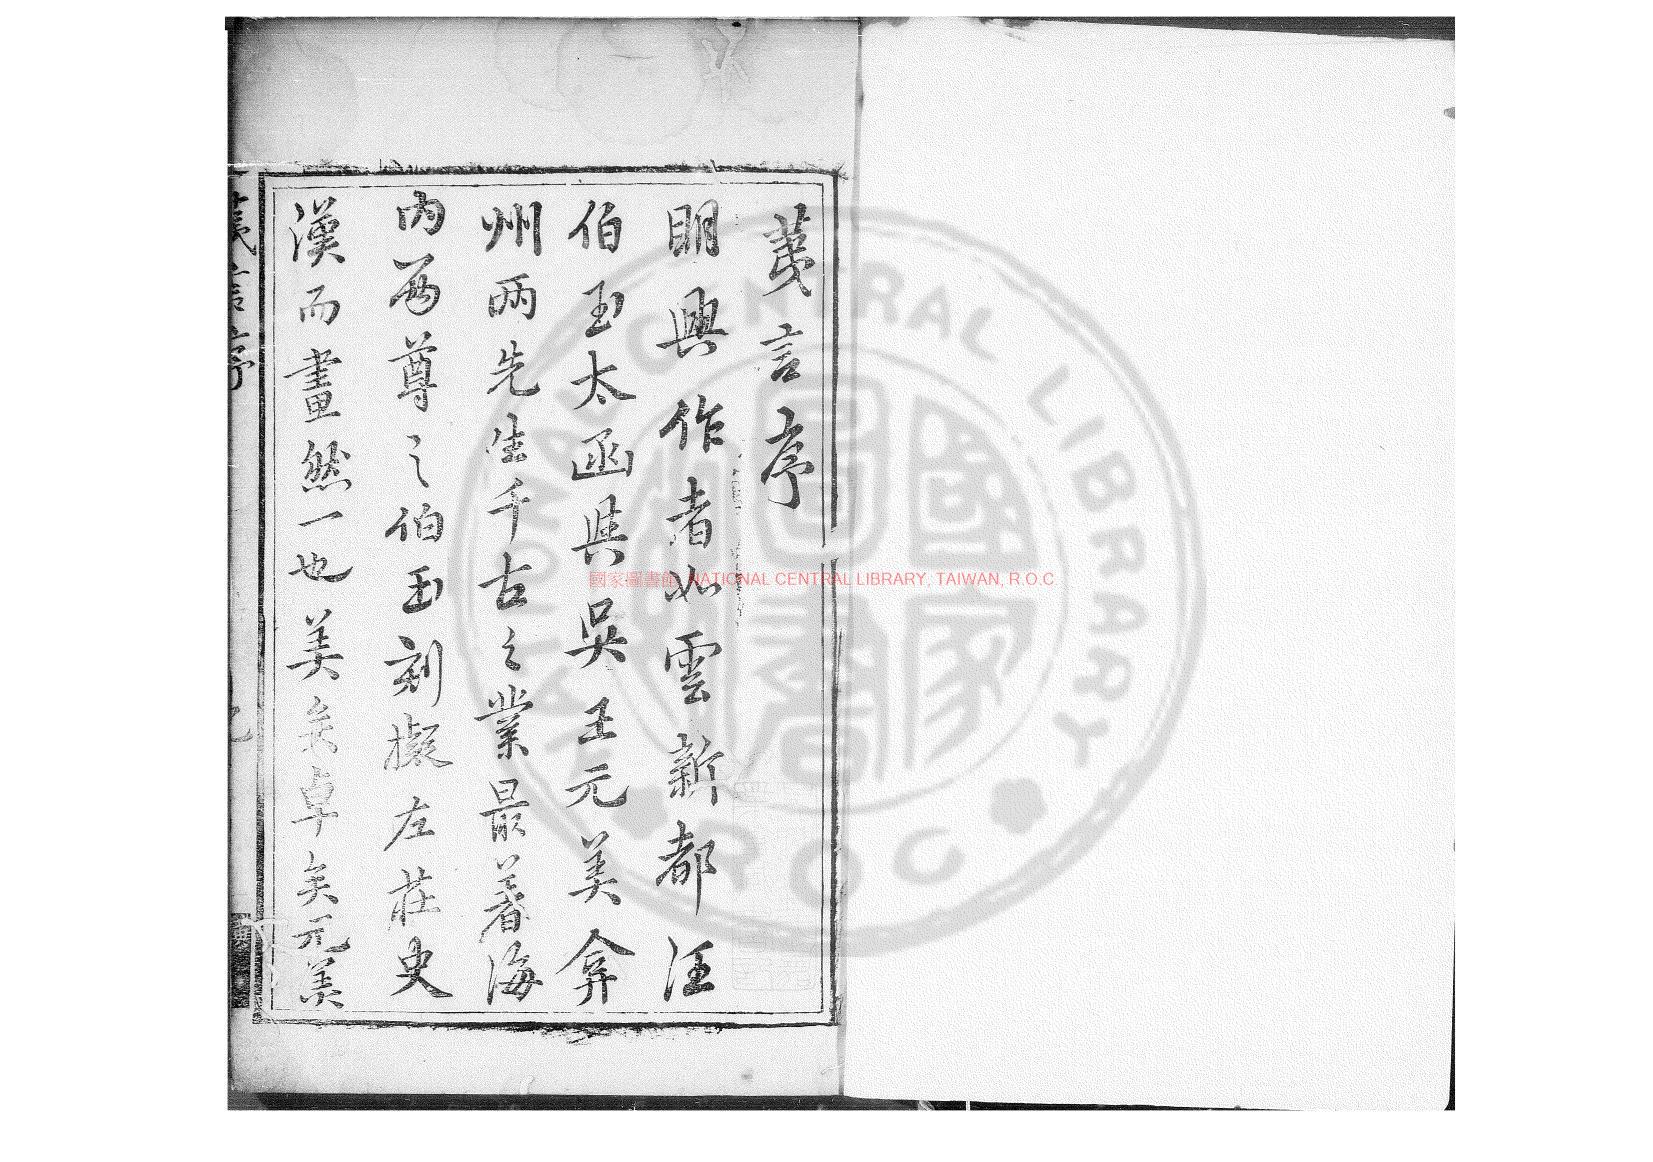 荑言序
明興作者如雲新都汪
伯玉太函與吳王元美弇
州兩先生千古之業最著海
內兩尊之伯玉刻擬左莊史
漢而畫然一也美矣卓矣元美
荑言序
國家圖書館 NATIONAL CENTRAL LIBRARY, TAIWAN, R.O.C
NATIONAL CENTRAL LIBRARY
R.O.C
國家圖書